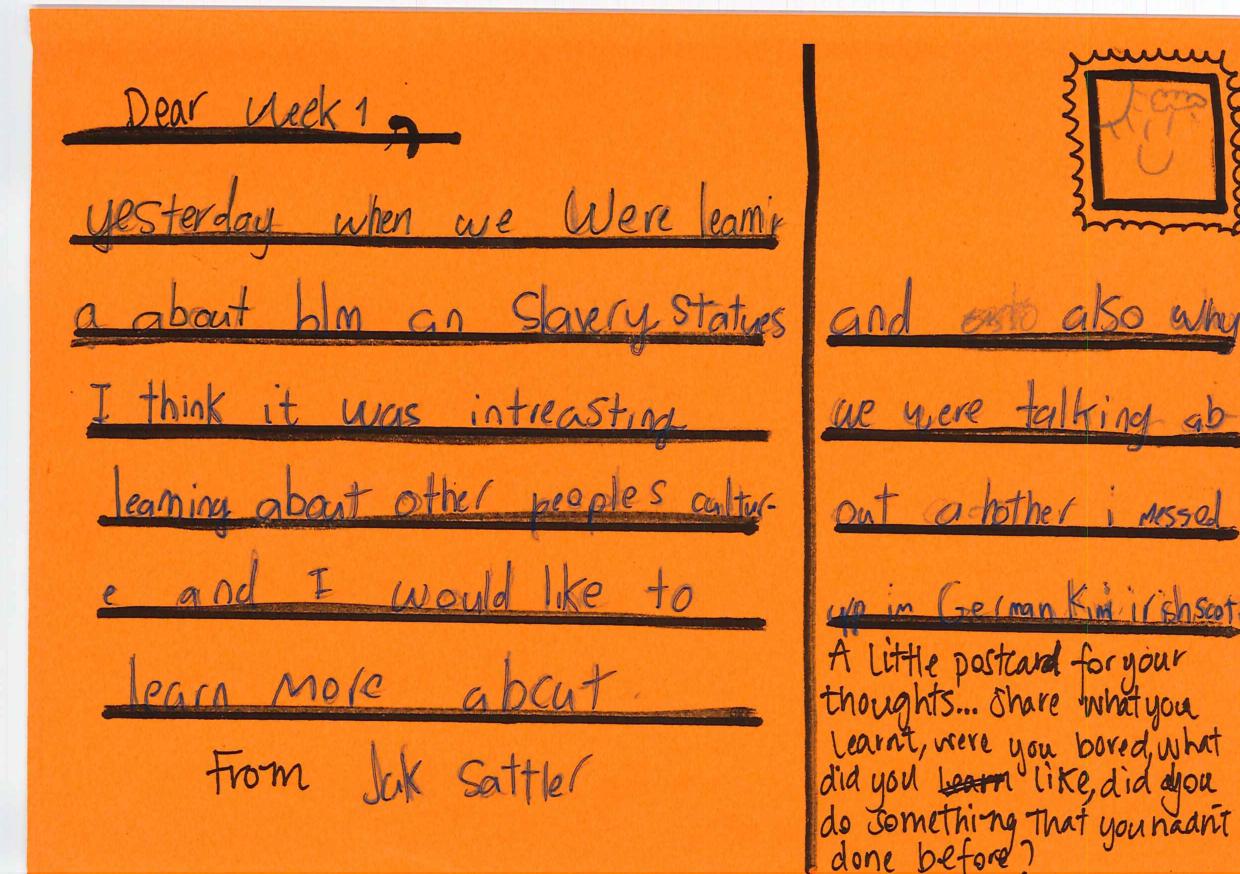 Dear Week 1,
yesterday when we Were learnin
a about blm an Slavery Statues
I think it was intreasting
learning about other peoples cultur-
e and I would like to
learn more about
From Jak Sattler
and also why
we were talking ab
out another i messed
up in German Kim irish scot
A little postcard for your
thoughts... Share what you
learnt, were you bored, what
did you learn like, did you
do something that you hadn't
done before?